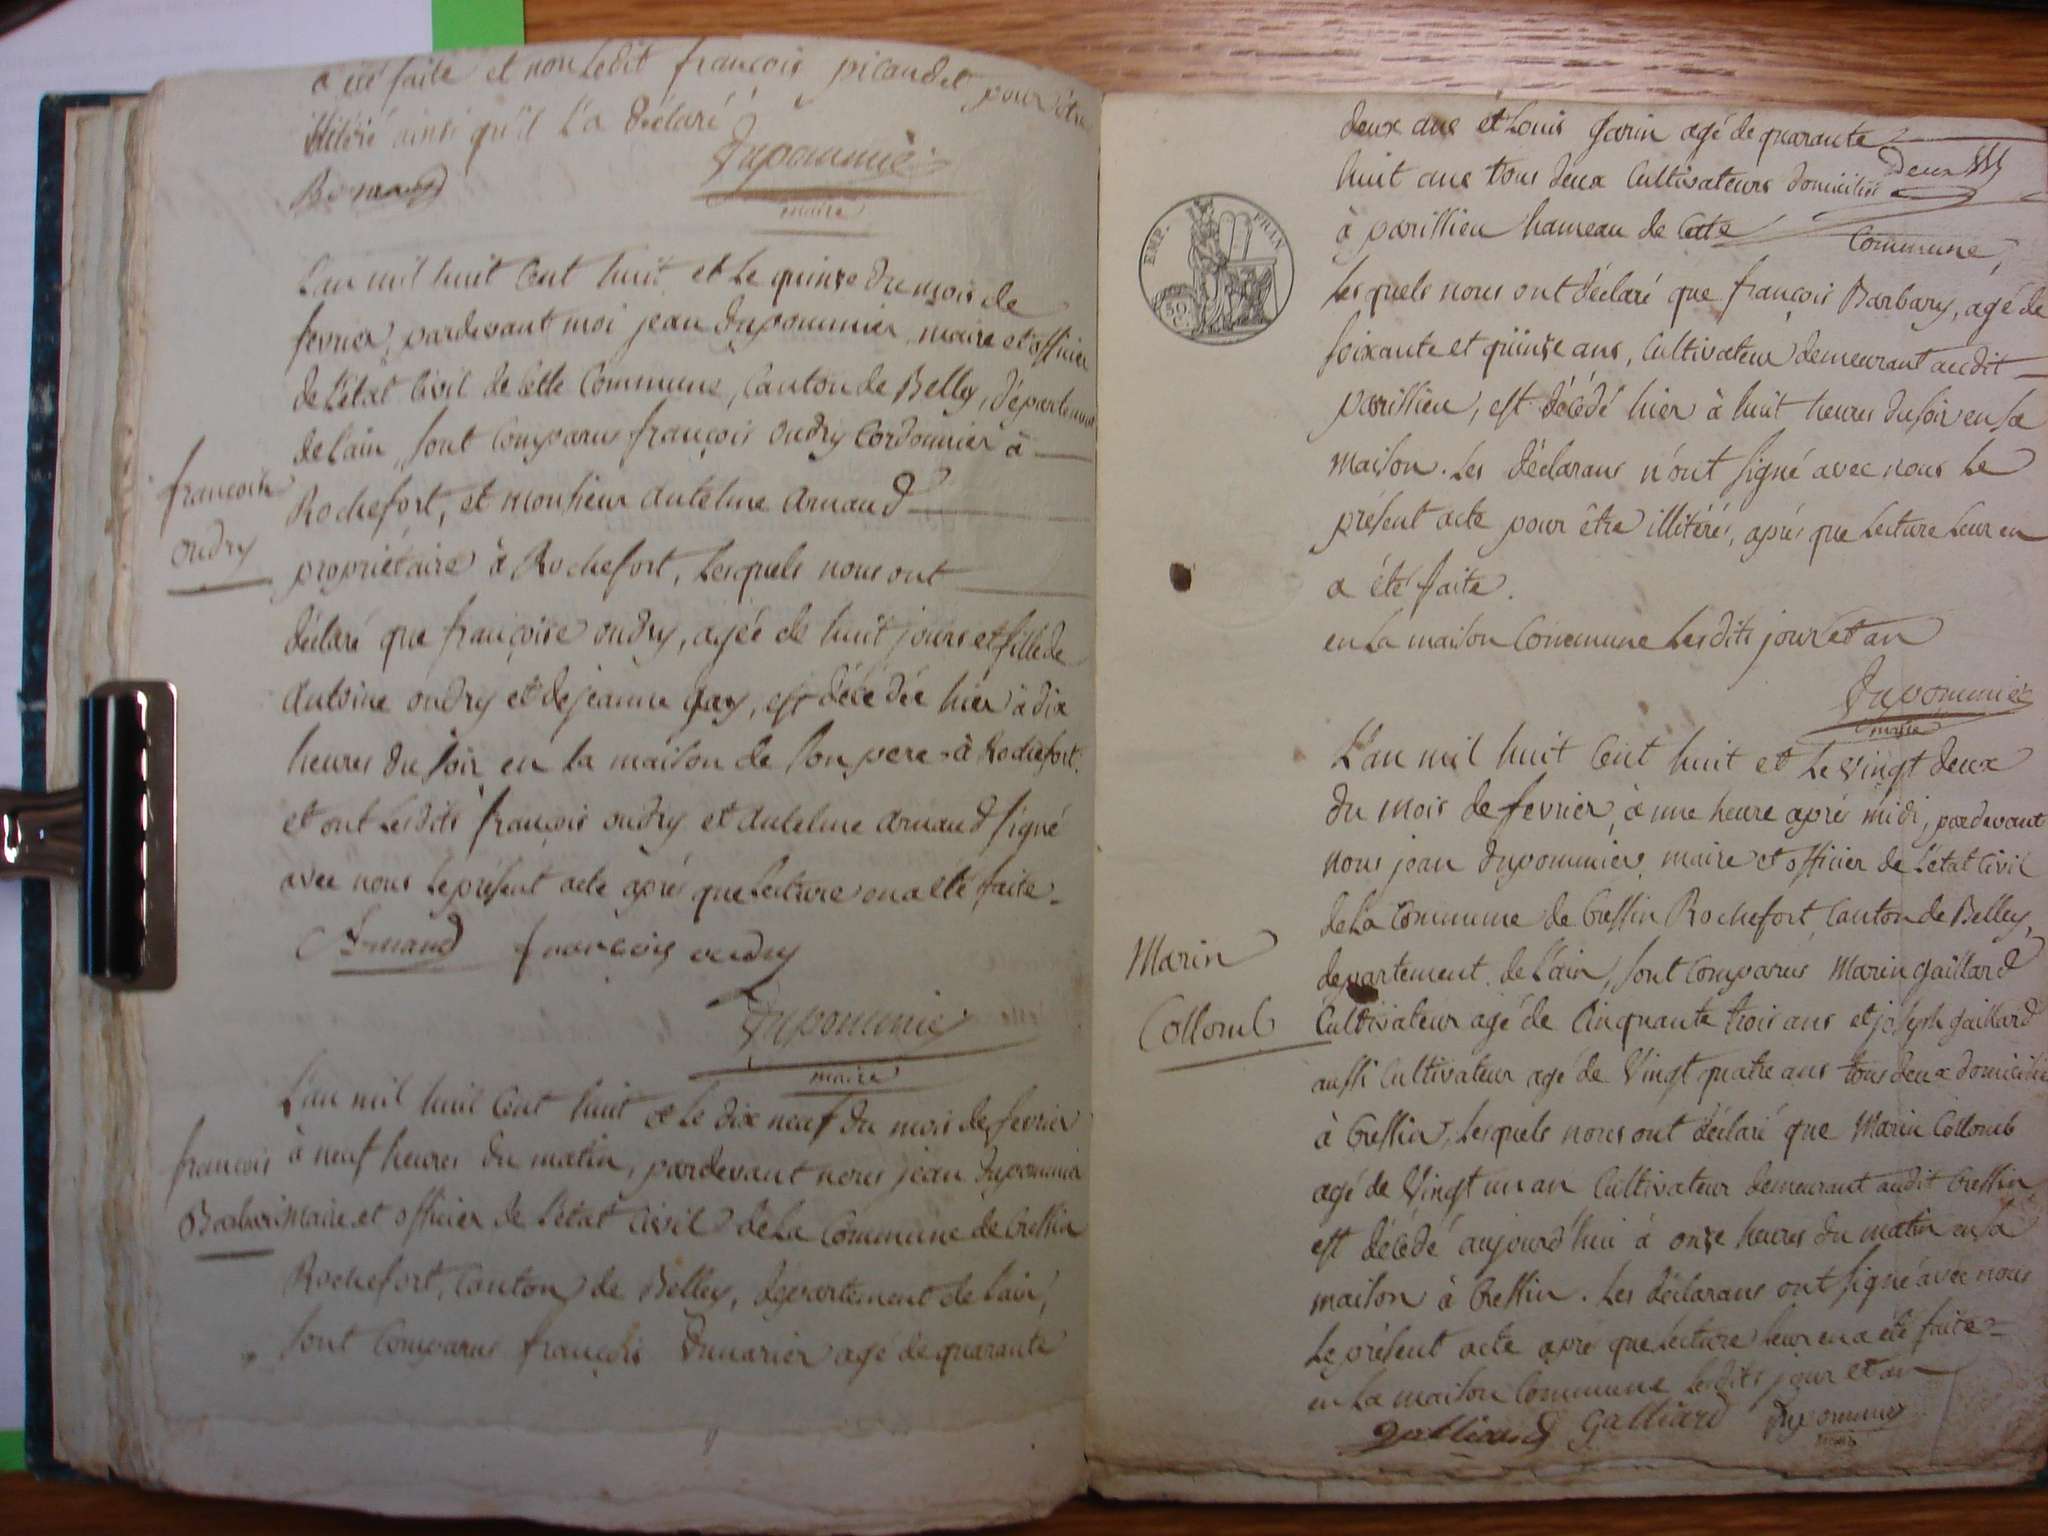 a été faite et non ledit françois picaudet pour être
illitéré ainsi qu'il l'a déclaré
Dupommie
maire
L'an mil huit cent huit et le quinze du mois de
fevrier, pardevant moi jean Dupommier, maire et officier
de l'état civil de cette Commune, Canton de Belley, département
de l'ain, sont comparus françois oudry Cordonnier à
françoise
oudry
Rochefort, et monsieur antelme arnaud
propriétaire à Rochefort, lesquels nous ont
déclaré que françoise oudry, agée de huit jours et fille de
antoine oudry et de jeanne gay, est décédée hier à dix
heures du soir en la maison de son pere à Rochefort.
et ont lesdits françois oudry et antelme arnaud signé
avec nous le présent acte aprés que lecture en a été faite.
Arnaud françois oudry
Dupommie
maire
L'an mil huit cent huit et le dix neuf du mois de fevrier
françois
Barbari
à neuf heures du matin, pardevant nous jean Dupommier
maire et officier de l'état civil de la Commune de Cressin
Rochefort, Canton de Belley, département de l'ain,
sont comparus françois Dumarier agé de quarante
deux ans et Louis garin agé de quarante
huit ans tous deux Cultivateurs domiciliés
à parissieu hameau de cete
Commune,
EMP. FRAN
50
C.
les quels nous ont déclaré que françois Barbary, agé de
soixante et quinze ans, Cultivateur demeurant audit
parissieu, est décédé hier à huit heures du soir en sa
maison. Les déclarans n'ont signé avec nous le
présent acte pour être illitérés, aprés que lecture leur en
a été faite.
en la maison Commune lesdits jour et an
Dupommier
maire
L'an mil huit cent huit et le vingt deux
du mois de fevrier, à une heure aprés midi, pardevant
nous jean Dupommier, maire et officier de l'état civil
de la Commune de Cressin Rochefort, Canton de Belley,
Marin
Collomb
département de l'ain, sont comparus Marin gaillard
Cultivateur agé de cinquante trois ans et joseph gaillard
aussi Cultivateur agé de vingt quatre ans tous deux domiciliés
à Cressin, lesquels nous ont déclaré que Marin Collomb
agé de vingt un an Cultivateur demeurant audit Cressin
est décédé aujourd'hui à onze heures du matin en sa
maison à Cressin. Les déclarans ont signé avec nous
le présent acte aprés que lecture leur en a été faite
en la maison Commune lesdits jour et an
galliard Galliard Dupommier
maire